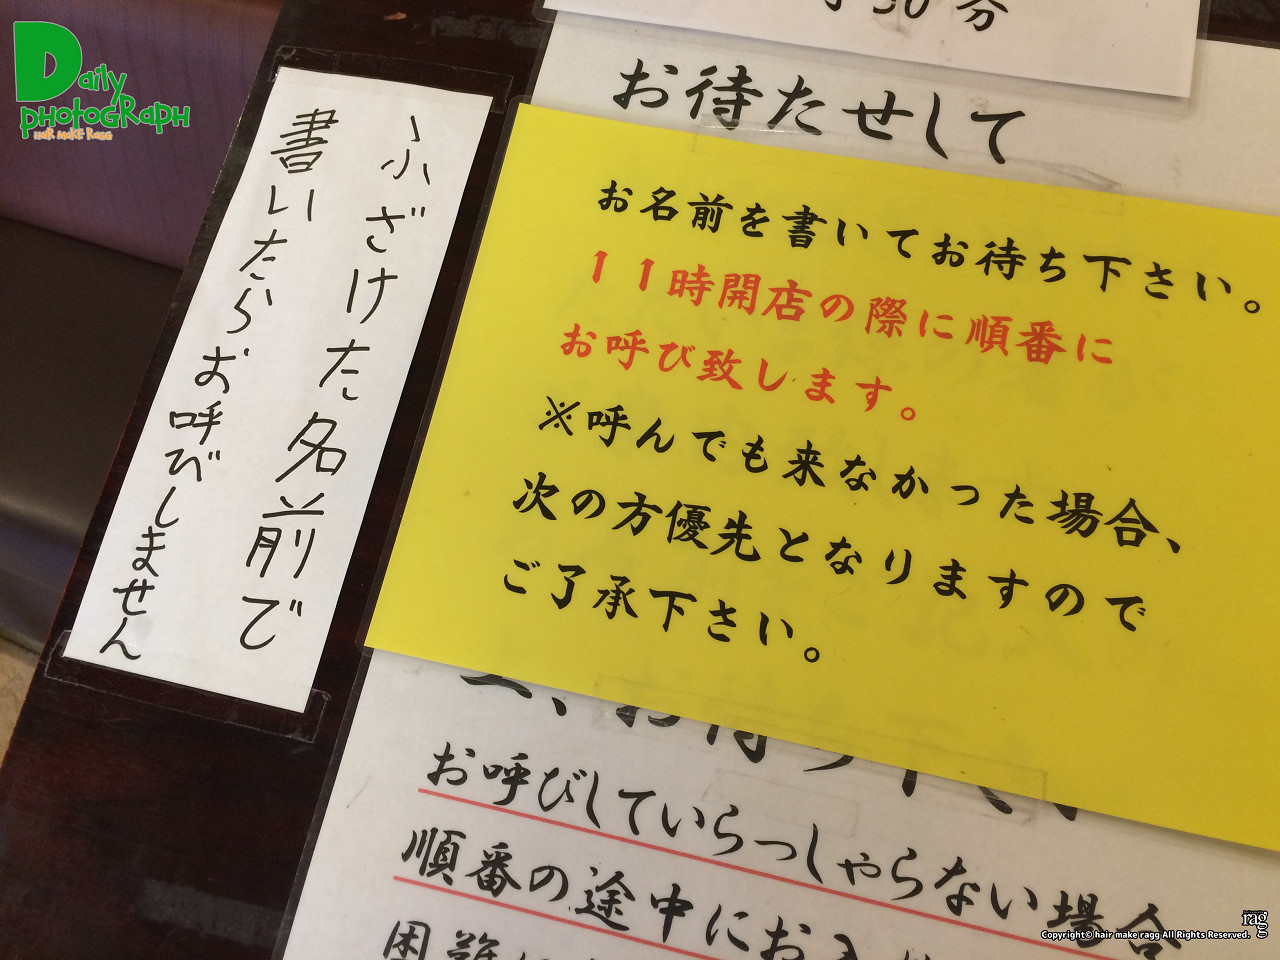 Daily
PhotoGRaph
HaiR MaKE RaGG
ふざけた名前で
書いたらお呼びしません
30分
お待たせして
お名前を書いてお待ち下さい。
11時開店の際に順番に
お呼び致します。
※呼んでも来なかった場合、
次の方優先となりますので
ご了承下さい。
お呼びしていらっしゃらない場合
順番の途中にお
困難
ragg
Copyright© hair make ragg All Rights Reserved.